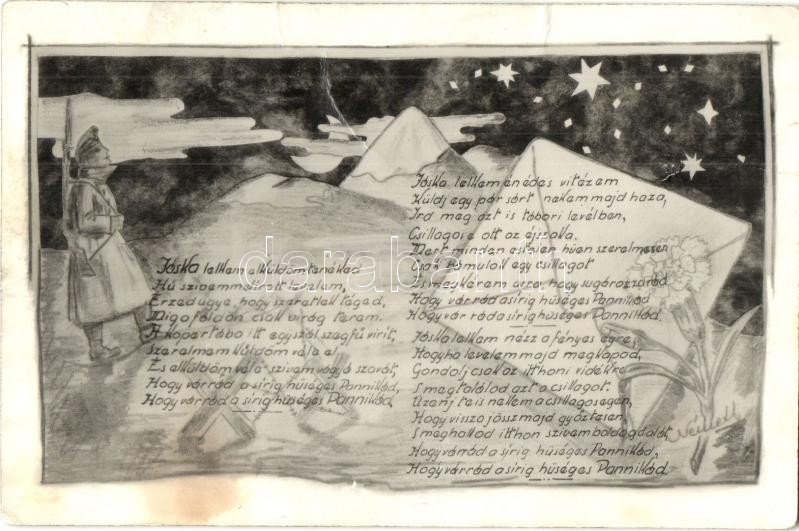 Jóska lelkem elküldöm tenéked
Hű szivemmel írott levelem,
Érzed ugye, hogy szeretlek téged,
Míg a földön csak virág terem.
A kopertába itt egy szál szegfű virít,
Szerelmem küldöm véle el
És elküldöm véle szivem vágyó szavát,
Hogy várrád a sírig hűséges Pannikád,
Hogy várrád a sírig hűséges Pannikád.
Jóska lelkem én édes vitézem
Küldj egy pár sort nekem majd haza,
Ird meg azt is tábori levélben,
Csillagos e ott az éjszaka.
Mert minden estelen hűen szerelmesen
Csak bámulok egy csillagot
S megkérem arra, hogy sugározza rád
Hogy várrád a sírig hűséges Pannikád
Hogy várrád a sírig hűséges Pannikád.
Jóska lelkem nézz a fényes égre,
Hogyha levelem majd megkapod,
Gondolj csak az itthoni vidékre
S megtalálod azt a csillagot.
Üzenj te is nekem a csillagos egen,
Hogy vissza jössz majd győztesen,
S meghallod itthon szivem boldog dalát,
Hogy várrád a sírig hűséges Pannikád,
Hogy várrád a sírig hűséges Pannikád.
darabanth